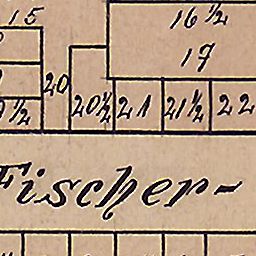 15
16½
17
20
20½ 21 21½ 22
Fischer-